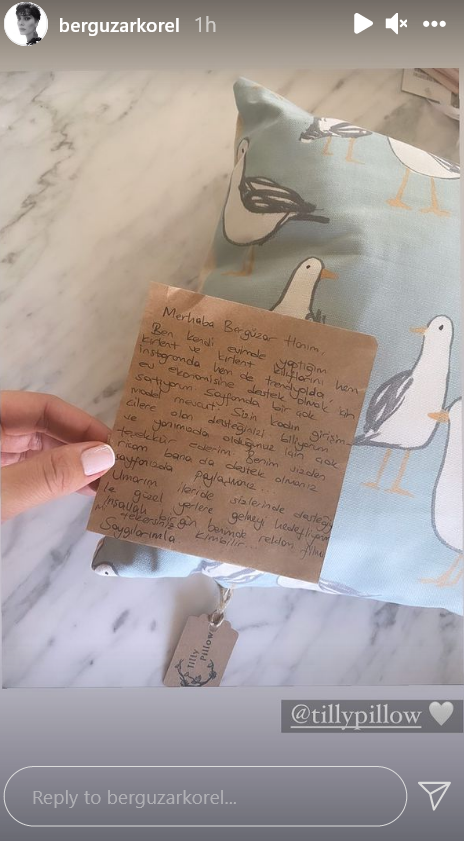 berguzarkorel 1h
Merhaba Bergüzar Hanım,
Ben kendi evimde yaptığım
kırlent ve kırlent kılıflarını hem
instagramda hem de trendyolda,
ev ekonomisine destek olmak için
satıyorum. Sayfamda bir çok
model mevcut. Sizin kadın girişim-
cilere olan desteğinizi biliyorum
ve yanımızda olduğunuz için çok
teşekkür ederim. Benim sizden
ricam bana da destek olmanız
sayfanızda paylaşmanız.
Umarım ileride sizlerinde desteği
ile güzel yerlere gelmeyi hedefliyorum
İnşallah bir gün
kimbilir...
Saygılarımla
tilly
Pillow
@tillypillow
Reply to berguzarkorel...